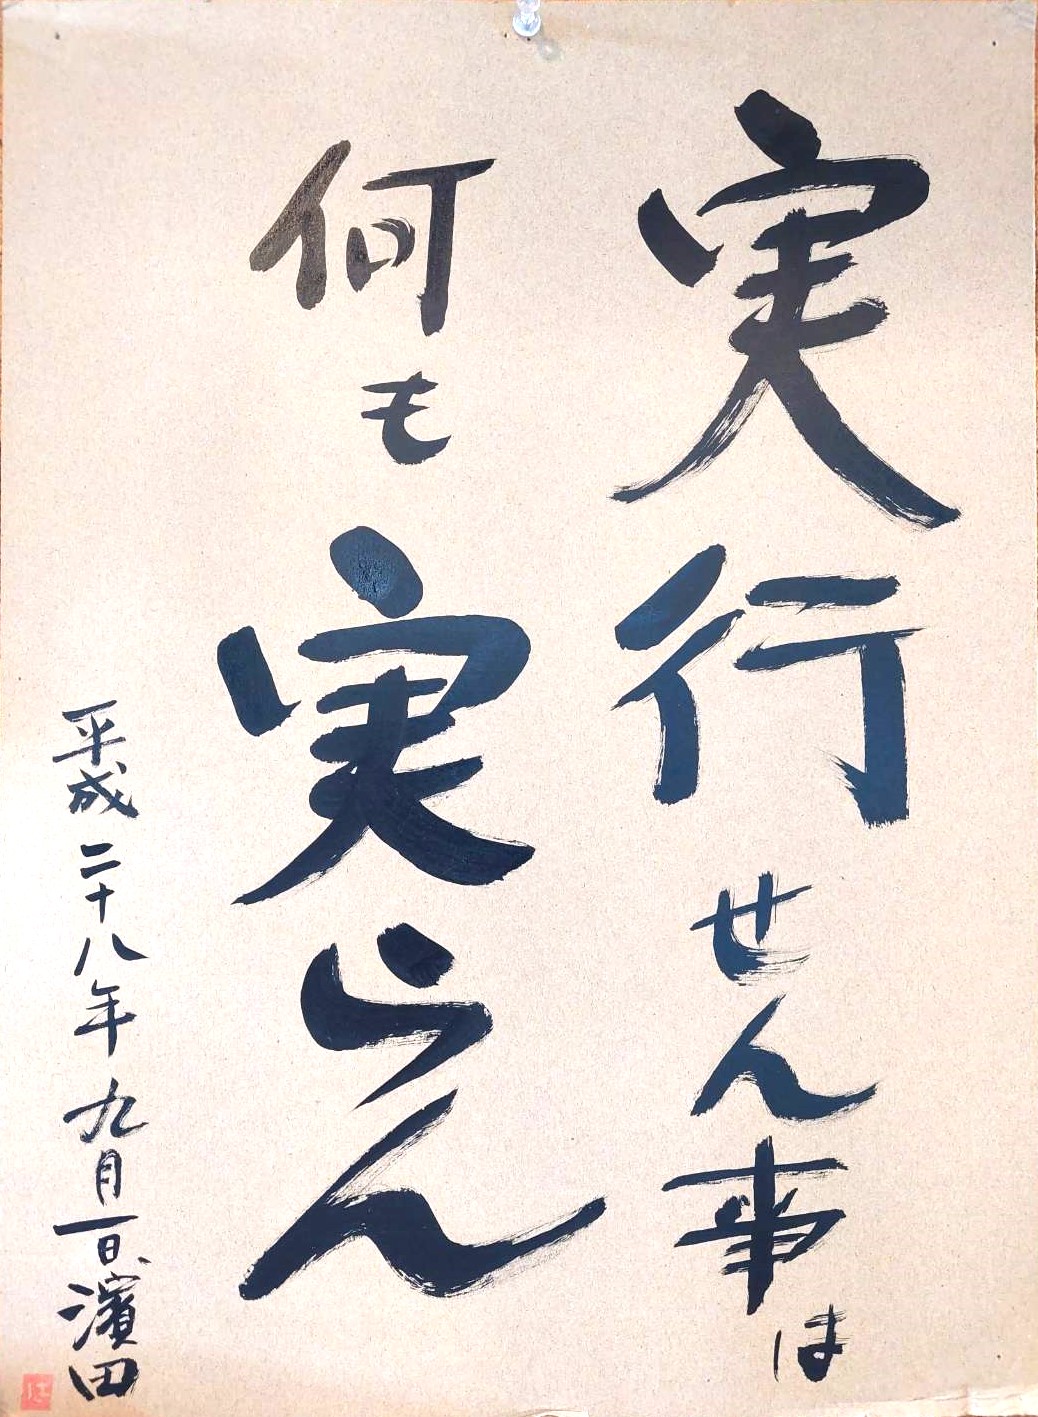 実行せん事は
何も実らん
平成二十八年九月一日、濱田